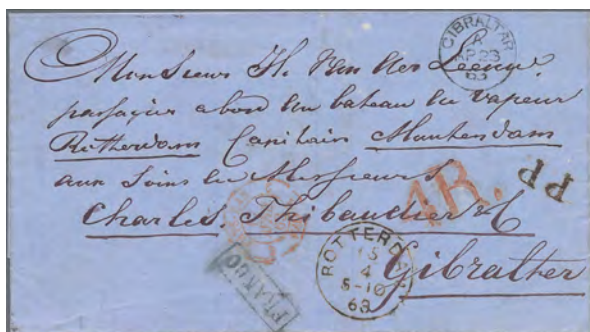 GIBRALTAR
A
AP 23
63
Monsieur H. Van der Leeuw.
passagier abord du bateau du Vapeur
Rotterdam Capitain
aux Soins de Messieurs
Charles, Thibaudier & C
Gibralter
4R.
PP
FRANCO
ROTTERDAM
15
4
8-10
63